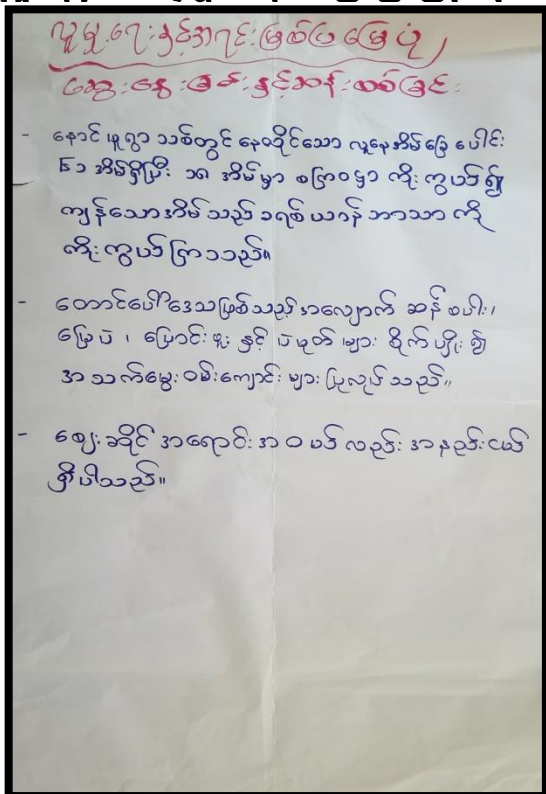 လူမှုရေးနှင့်အရင်းမြစ်ပြမြေပုံ
ဆွေးနွေးခန်းနှင့်ဆန်းစစ်ခြင်း
- နောင်ယူရွာသစ်တွင် နေထိုင်သော လူနေအိမ်ခြေပေါင်း
အိမ်ရှိပြီး ၁၈ အိမ်မှာ ကိုးကွယ်၍
ကျန်သောအိမ်သည် ခရစ်ယာန်ဘာသာကို
ကိုးကွယ်ကြသည်။
- တောင်ပေါ်ဒေသဖြစ်သည့်အလျောက် ဆန်စပါး၊
မြေပဲ၊ ပြောင်းဖူးနှင့် ပဲပုတ်များ စိုက်ပျိုး၍
အသက်မွေးဝမ်းကျောင်းများပြုလုပ်သည်။
- ဈေးဆိုင်အရောင်းအဝယ်လည်းအနည်းငယ်
ရှိပါသည်။